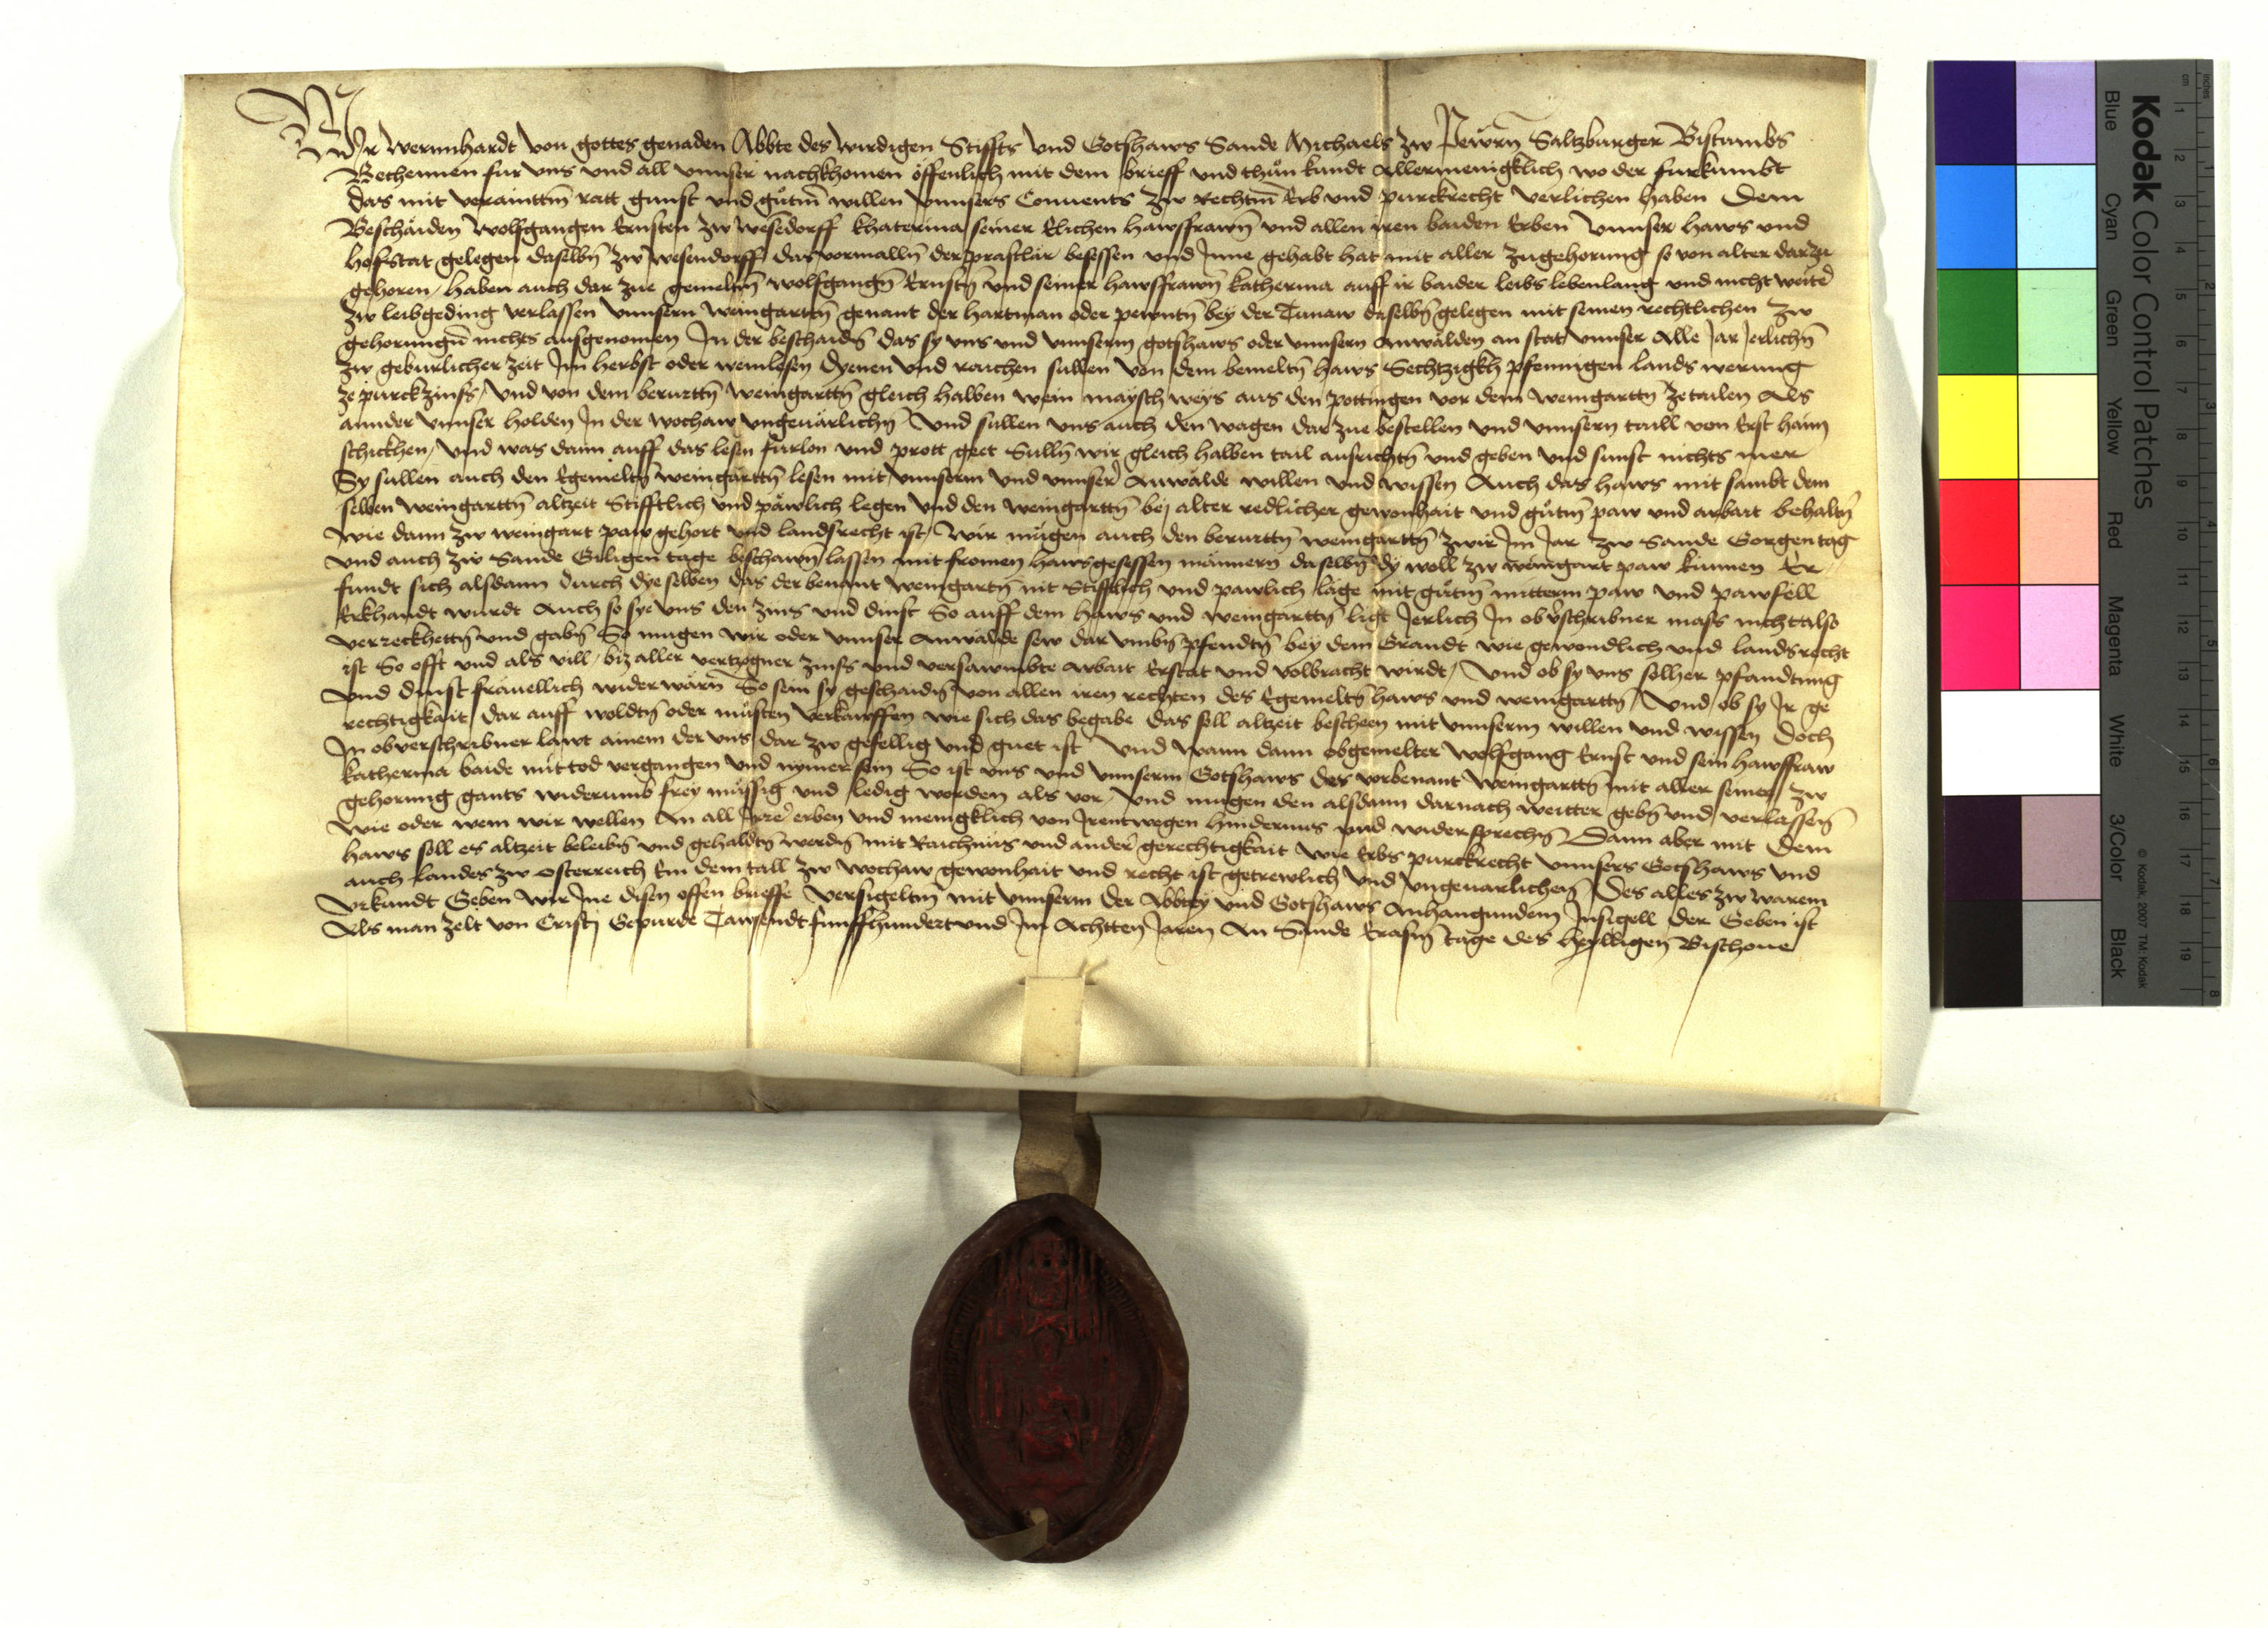 Wir wernnhardt von gottes genaden Abbte des wirdigen Stiffts und Gotshaws Sande Michaels zw Pewrn Saltzburger Bistumbs
Bechennen fur vns vnd all vnnser nachkhomen offenlich mit dem brieff vnd thun kundt Allermenigklich wo der furkumbt
das mit verainttm ratt gunst vnd gutm willen vnnsers Conuents zw Rechtm Erb vnd purckrecht verlichen haben Dem
Beschaiden Wolfgangen Ernsten zw wesedorff khaterina seiner Elichen Hawsffrawn vnd allen iren baiden Erben vnnser haws vnd
hofstat gelegen daselbn zw wesendorff das vormalln der prastlar besessen vnd Inne gehabt hat mit aller zugehorung so von alter dar zu
gehoren / haben auch dar zue gemeltn wolfgangn Ernstn vnd seiner hawsffrawn katherina auff ir baider leibs lebenlang vnd nicht weiter
zw leibgeding verlassen vnnsern weingarttn genant der hartman oder pewntn bey der Tunaw daselbn gelegen mit seinen rechtlichen zw
gehorungn nichts ausgenomen In der beschaidn das sy vns vnd vnnserm gotshaws oder vnnsern Anwalden an stat vnnser Alle Jar Jerlichn
zw geburlicher zeit Im herbst oder weinlesen dyenen vnd raichen sullen von dem bemeltn haws Sechtzigkh pfennigen lands werung
ze purckzinss / vnd von dem berurttn weingarttn gleich halben wein maysch weys aus den pottingen vor dem weingarttn ze tailen Als
annder vnnser holden In der wochaw vngeuarlichn vnd sullen vns auch den wagen dar zue bestellen vnd vnnsern taill von Erst haim
schickhen / vnd was dann auff das lesen furlon vnd prott geet Sulln wir gleich halben tail ausrichtn vnd geben vnd sunst nichts mer
Sy sullen auch den Egemeltn weingarttn lesen mit vnnserm vnd vnnser Anwalde willen vnd wissen Auch das haws mit sambt dem
selben weingarttn altzeit Stifftlich vnd pawlich legen vnd den weingarttn bej alter redlicher gewonhait vnd gutm paw vnd arbait behaltn
wie dann zw weingart paw gehort vnd landsrecht ist / Wir mugen auch den berurttn weingarttn zwir Im Jar zw Sande Gorgen tag
vnd auch zw Sande Giligen tage beschawn lassen mit fromen hawsgesessen mannern daselbn dy woll zw weingart paw kunnen Er
fundt sich alsdann durch dyeselben das der benant weingartn nit Stifftlich vnd pawlich lage mit gutm mitterm paw vnd pawfell
Erkhandt wurdt Auch so sye vns den zins vnd dinst So auff dem haws vnd weingarttn ligt Jerlich In obverschribner mass nicht also
verreckhettn vnd gabn So mugen wir oder vnnser Anwalde sew dar vmbn pfendtn bey dem Grundt wie gewondlich vnd landsrecht
ist So offt vnd als vill / biz aller vertzogner zinss vnd versawmbte arbait Erstat vnd volbracht wirdt / vnd ob sy vns solher pfandtung
vnd dinst frauellich wider warn So sein sy geschaidn von allen iren rechten des Egemeltn haws vnd weingarttn / vnd ob sy Jr ge
rechtigkait dar auff woldtn oder musten verkawffen wie sich das begabe das soll altzeit bescheen mit vnnserm willen vnd wissen Doch
In obverschribner lawt ainem der vns dar zw gefellig vnd guet ist vnd wann dann obgemelter wolfgang Ernst vnd sein hawsffraw
katherina baide mit tod vergangen vnd nymer sein So ist vns vnd vnnserm Gotshaws des vorbenant weingarttn mit aller seiner zw
gehorung gants widerumb frey mussig vnd ledig worden als vor / vnd mugen den alsdann darnach weitter gebn vnd verlassen
wie oder wem wir wellen An all Irrer erben vnd menigklich von Jrentwegen hindernus vnd widersprechn Dann aber mit Dem
haws soll es altzeit beleibn vnd gehaldtn werdn mit Raichnus vnd ander gerechtigkait wie Erbs purckrecht vnnsers Gotshaws vnd
auch landes zw Osterreich Em dem tall zw wochaw gewonhait vnd recht ist getrewlich vnd vngeuarlichen Des alles zw warem
vrkundt Geben wir Ine disen offen brieffe versigeltm mit vnnserm der Abbtey vnd Gotshaws Anhangundem Insigell der Geben ist
Als man zelt von Cristj Gepurde Tawsendt funffhundert vnd Im Achtten Jaren An Sande Erasm tage des heylligen Bischoue
Kodak Color Control Patches
Blue Cyan Green Yellow Red Magenta White 3/Color Black
© Kodak, 2007 TM: Kodak
cm 1 2 3 4 5 6 7 8 9 10 11 12 13 14 15 16 17 18 19
inches 1 2 3 4 5 6 7 8